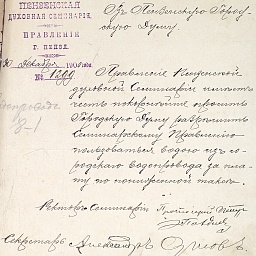 ПЕНЗЕНСКАЯ
ДУХОВНАЯ СЕМИНАРІЯ.
ПРАВЛЕНІЕ
Г. ПЕНЗА.
30 Декабря 190
№ 1299
Въ Пензенскую Город-
скую Думу.
Правленіе Пензенской
духовной Семинаріи имѣетъ
честь покорнѣйше просить
Городскую Думу разрѣшить
Семинарскому Правленію
пользоваться водою изъ го-
родскаго водопровода за пла-
ту по пониженной таксѣ.
Ректоръ Семинаріи Протоіерей
Секретарь Александръ